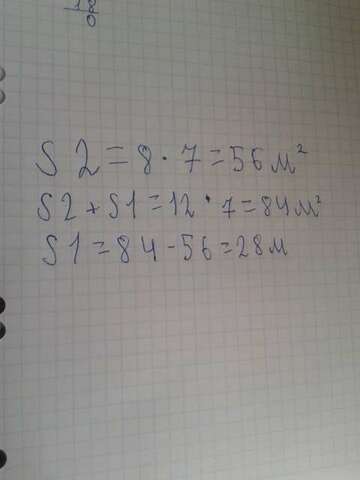 18
0
S2=8·7=56м²
S2+S1=12·7=84м²
S1=84-56=28м